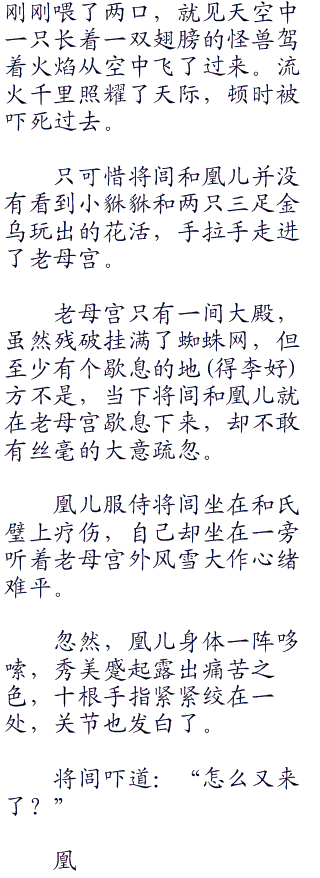 刚刚喂了两口，就见天空中
一只长着一双翅膀的怪兽驾
着火焰从空中飞了过来。流
火千里照耀了天际，顿时被
吓死过去。
只可惜将闾和凰儿并没
有看到小貅貅和两只三足金
乌玩出的花活，手拉手走进
了老母宫。
老母宫只有一间大殿，
虽然残破挂满了蜘蛛网，但
至少有个歇息的地(得李好)
方不是，当下将闾和凰儿就
在老母宫歇息下来，却不敢
有丝毫的大意疏忽。
凰儿服侍将闾坐在和氏
璧上疗伤，自己却坐在一旁
听着老母宫外风雪大作心绪
难平。
忽然，凰儿身体一阵哆
嗦，秀美蹙起露出痛苦之
色，十根手指紧紧绞在一
处，关节也发白了。
将闾吓道：“怎么又来
了？”
凰